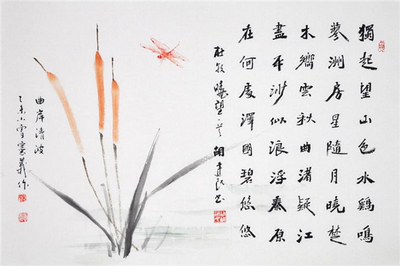 獨起望山色水鷄鳴
蓼洲房星隨月曉楚
木嚮雲秋曲渚疑江
盡平沙似浪浮秦原
在何處澤國碧悠悠
杜牧曉望一首胡書
曲岸清波
乙未小雪作